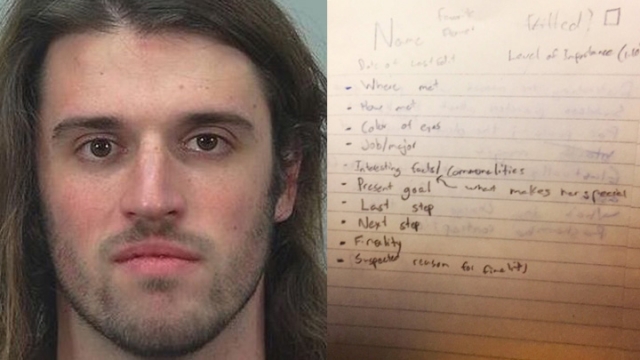 Name
Killed?
Date of Last Edit
Level of Importance (1-10
- Where met
- How met
- Color of eyes
- Job/major
- Interesting facts/commonalities
- Present goal what makes her special
- Last step
- Next step
- Finality
- Suspected reason for finality